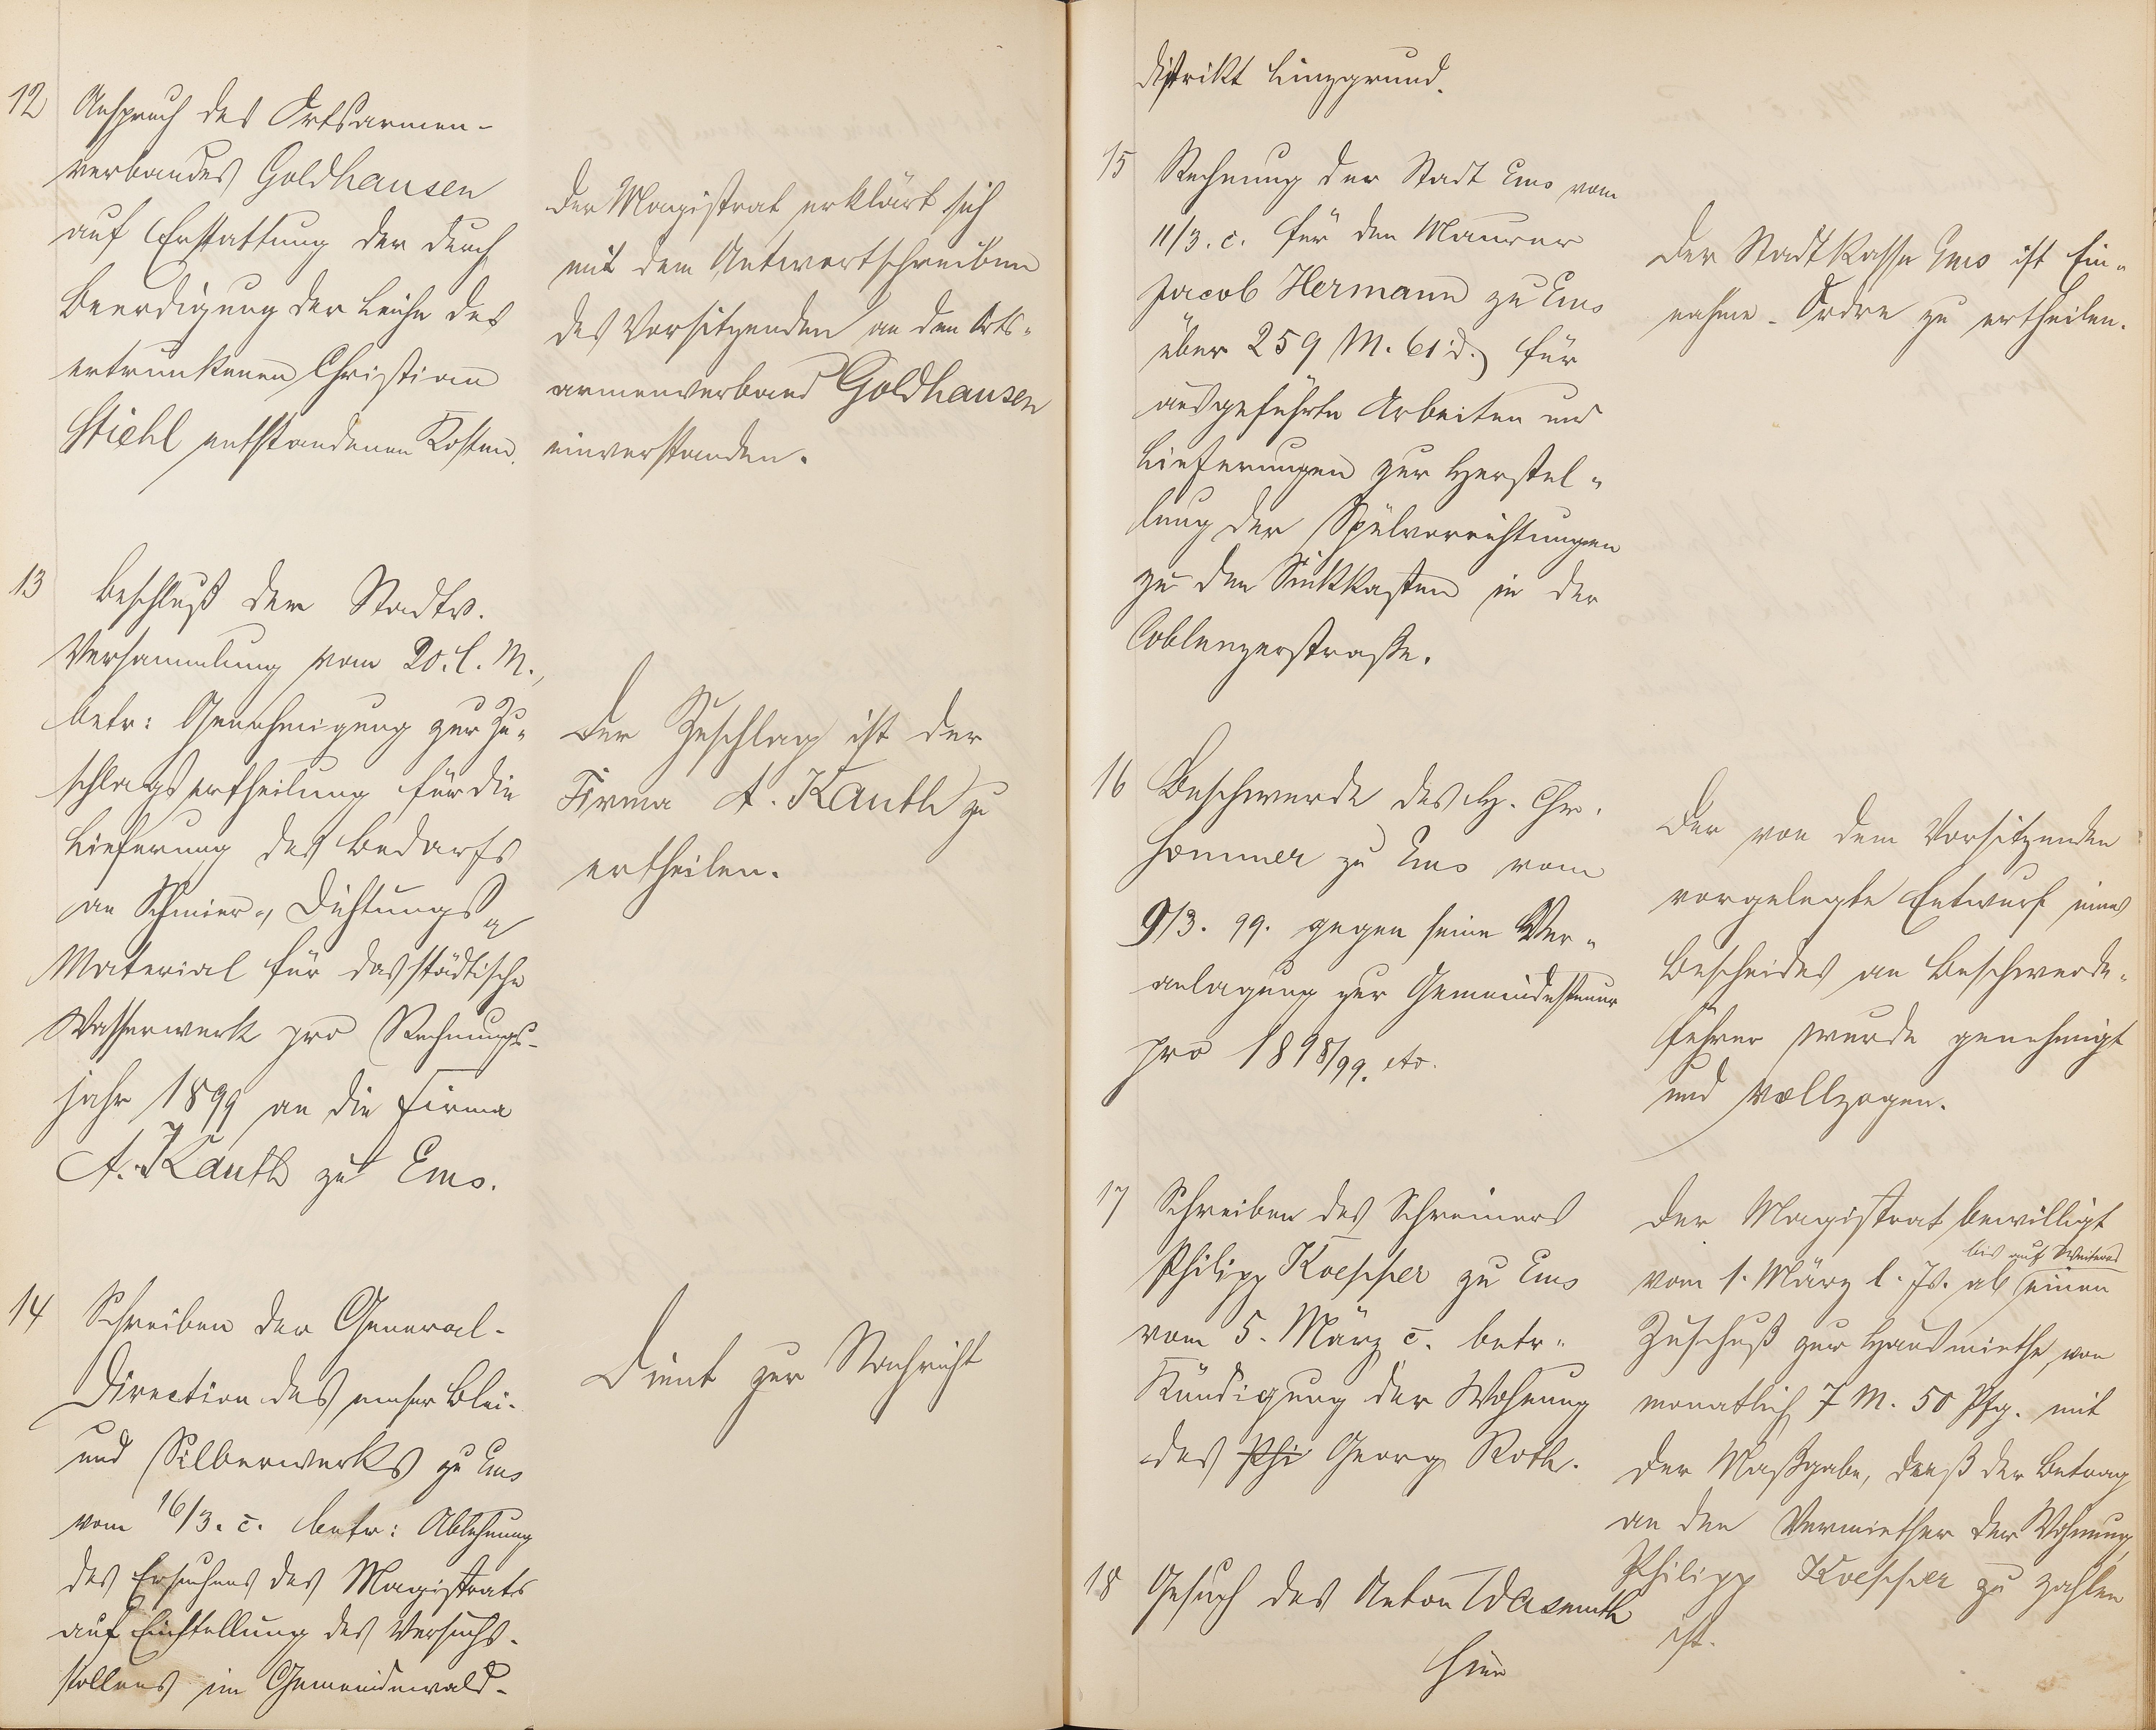 12 Anspruch des Ortsarmen-
verbandes Goldhausen
auf Erstattung der durch
Beerdigung der Leiche des
ertrunkenen Christian
Stiehl entstandenen Kosten.
Der Magistrat erklärt sich
mit dem Antwortschreiben
des Vorsitzenden an den Orts-
armenverband Goldhausen
einverstanden.
13 Beschluß der Stadtv.
Versammlung vom 20. l. M.,
betr: Genehmigung zur Zu-
schlagsertheilung für die
Lieferung des Bedarfs
an Schmier-, Dichtungs-
Material für das städtische
Wasserwerk pro Rechnungs-
jahr 1899 an die Firma
A. Kauth zu Ems.
Der Zuschlag ist der
Firma A. Kauth zu
ertheilen.
14 Schreiben der General-
Direction des emser Blei-
und Silberwerks zu Ems
vom 16/3. c. betr: Ablehnung
des Ersuchens des Magistrats
auf Einstellung des Versuchs-
stollens im Gemeindewald-
Dient zur Nachricht
distrikt Linzgrund.
15 Rechnung der Stadt Ems vom
11/3. c. für den Maurer
Jacob Hermann zu Ems
über 259 M. 61 d. für
ausgeführte Arbeiten und
Lieferungen zur Herstel-
lung der Spülvorrichtungen
zu den Sinkkasten in der
Coblenzerstraße.
Der Stadtkasse Ems ist Ein-
nahme-Ordre zu ertheilen.
16 Beschwerde des H. Chr.
Sommer zu Ems vom
9/3. 99. gegen seine Ver-
anlagung zur Gemeindesteuer
pro 1898/99. etc.
Der von dem Vorsitzenden
vorgelegte Entwurf eines
Bescheides an Beschwerde-
führer wurde genehmigt
und vollzogen.
17 Schreiben des Schreiners
Philipp Koepper zu Ems
vom 5. März c. betr.
Kündigung der Wohnung
des Phi Georg Roth.
Der Magistrat bewilligt
bis auf Weiteres
vom 1. März l. Js. ab einen
Zuschuß zur Hausmiethe von
monatlich 7 M. 50 Pfg. mit
der Maßgabe, daß der Betrag
an den Vermiether der Wohnung
Philipp Koepper zu zahlen
ist.
18 Gesuch des Anton Wasmuth
hier